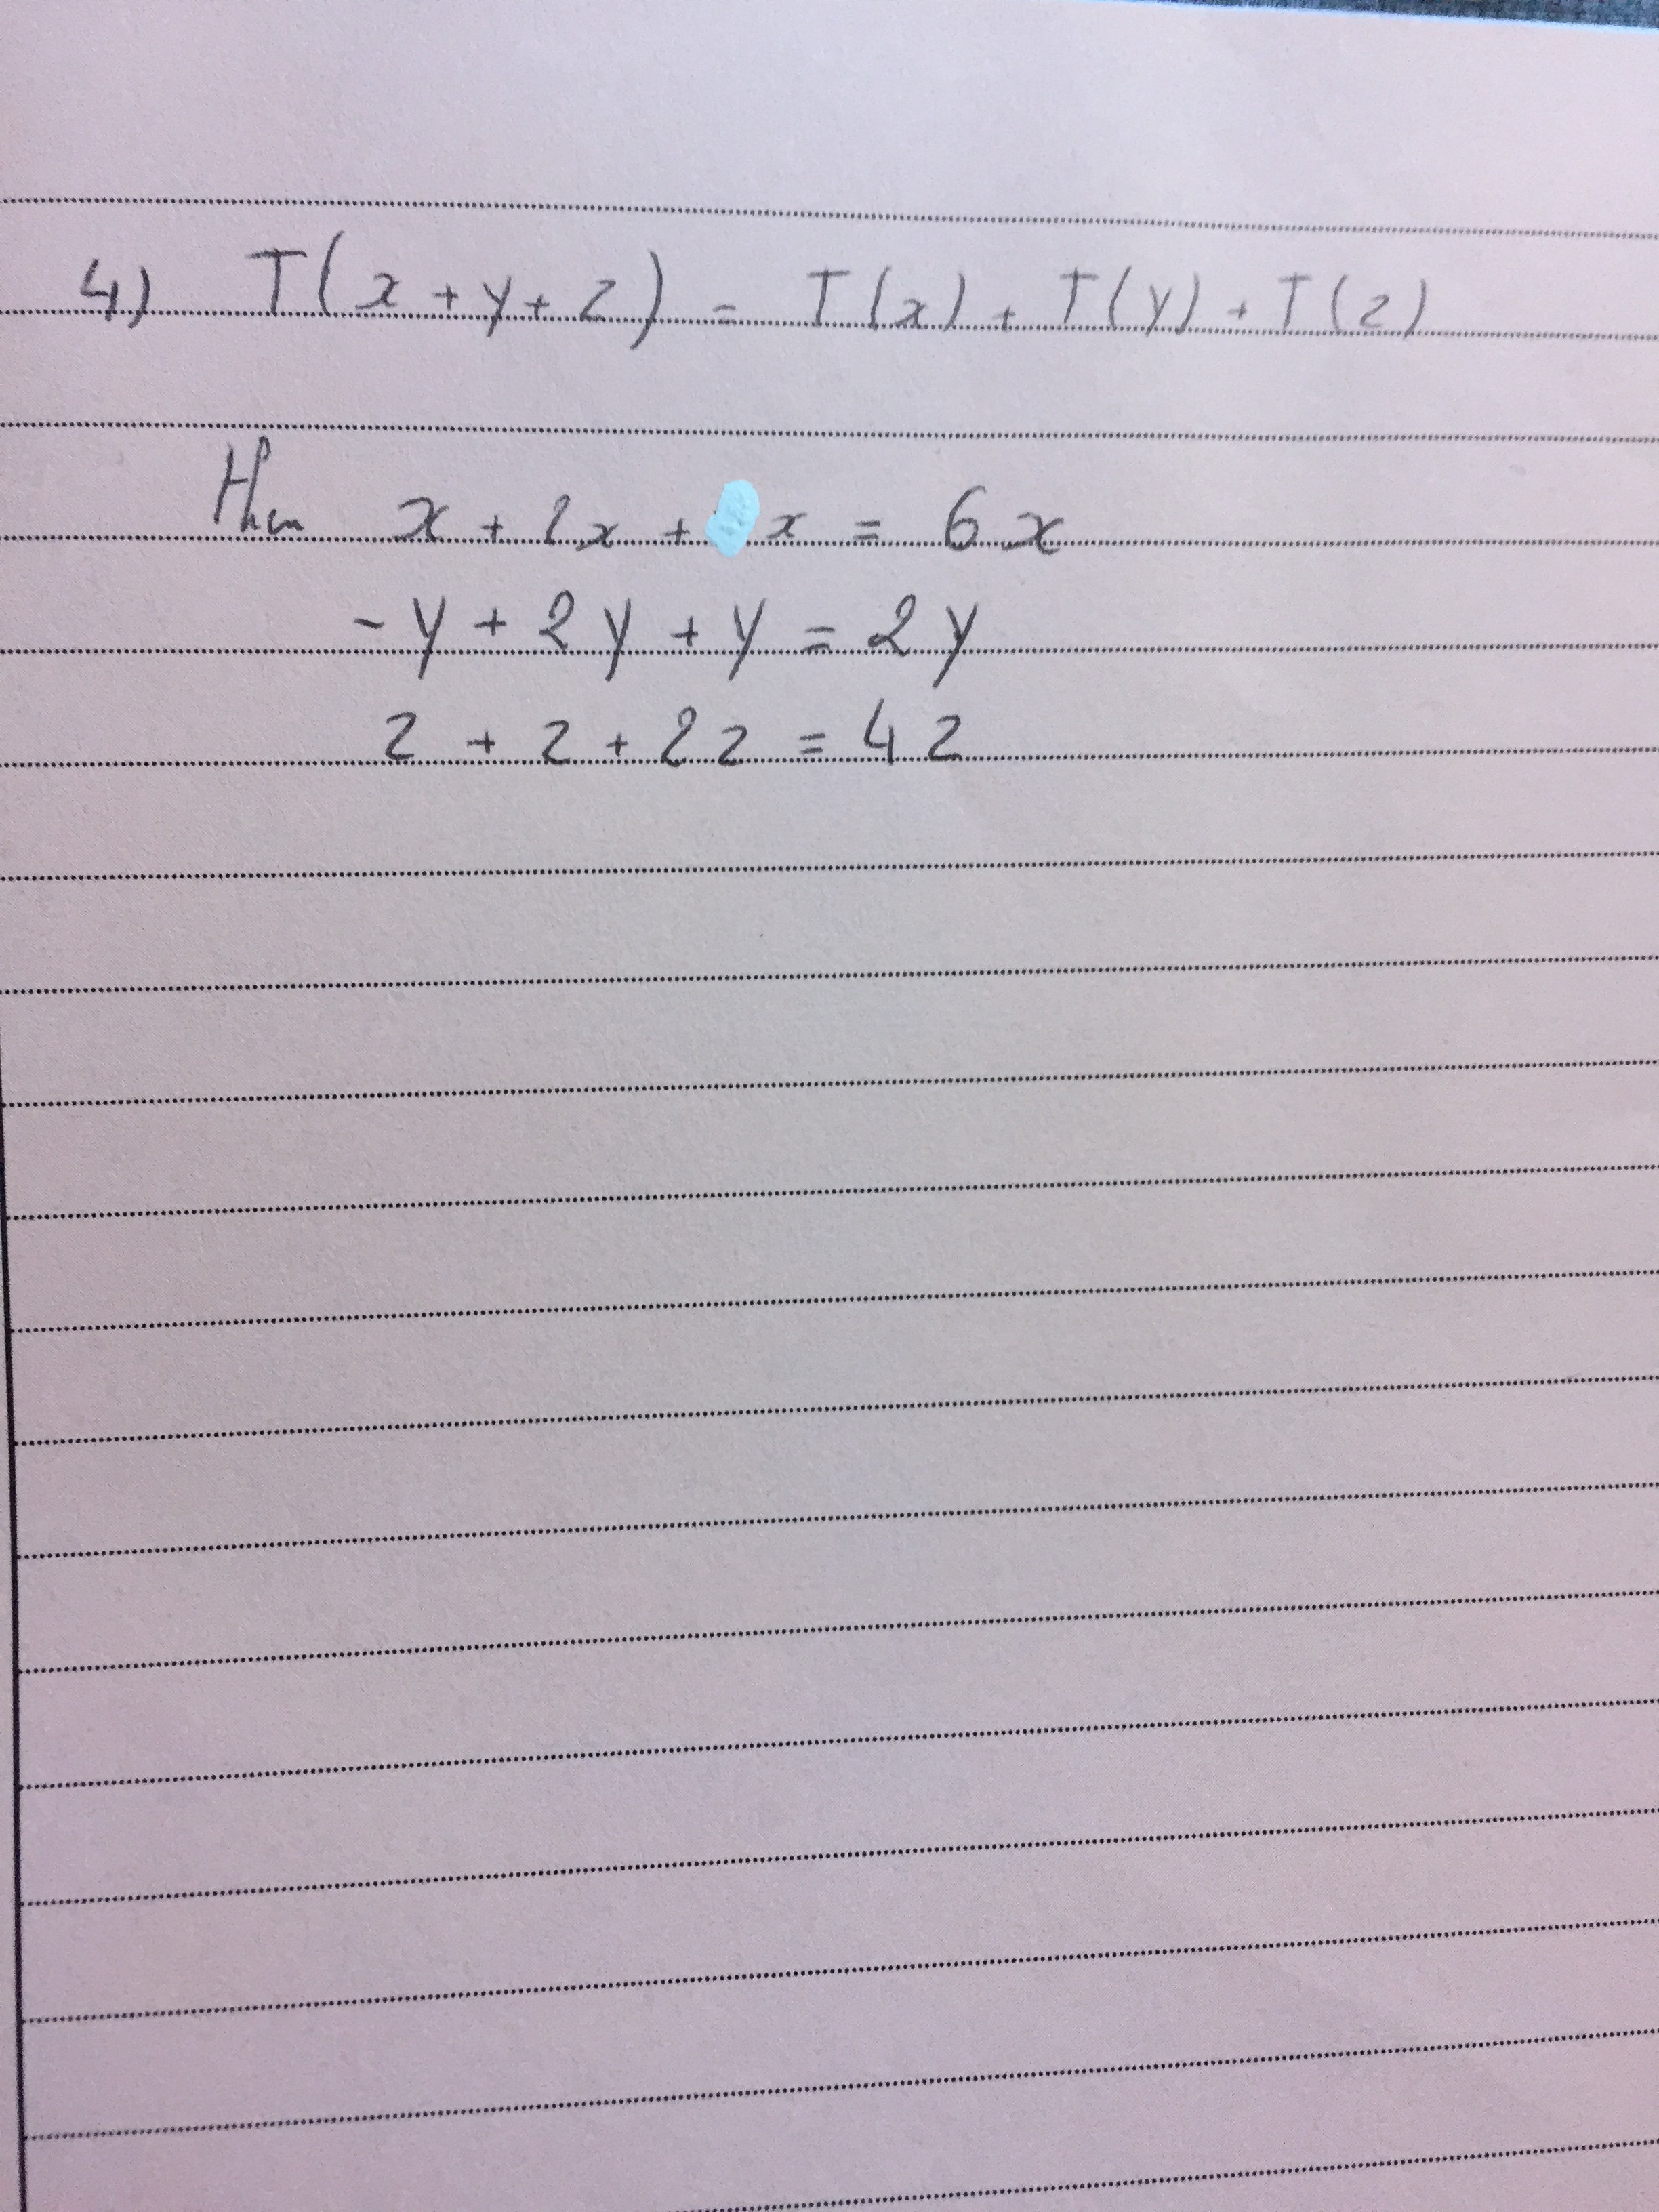 4) T(x+y+z) = T(x) + T(y) + T(z)
Then x + 2x + x = 6x
-y + 2y + y = 2y
z + z + 2z = 4z